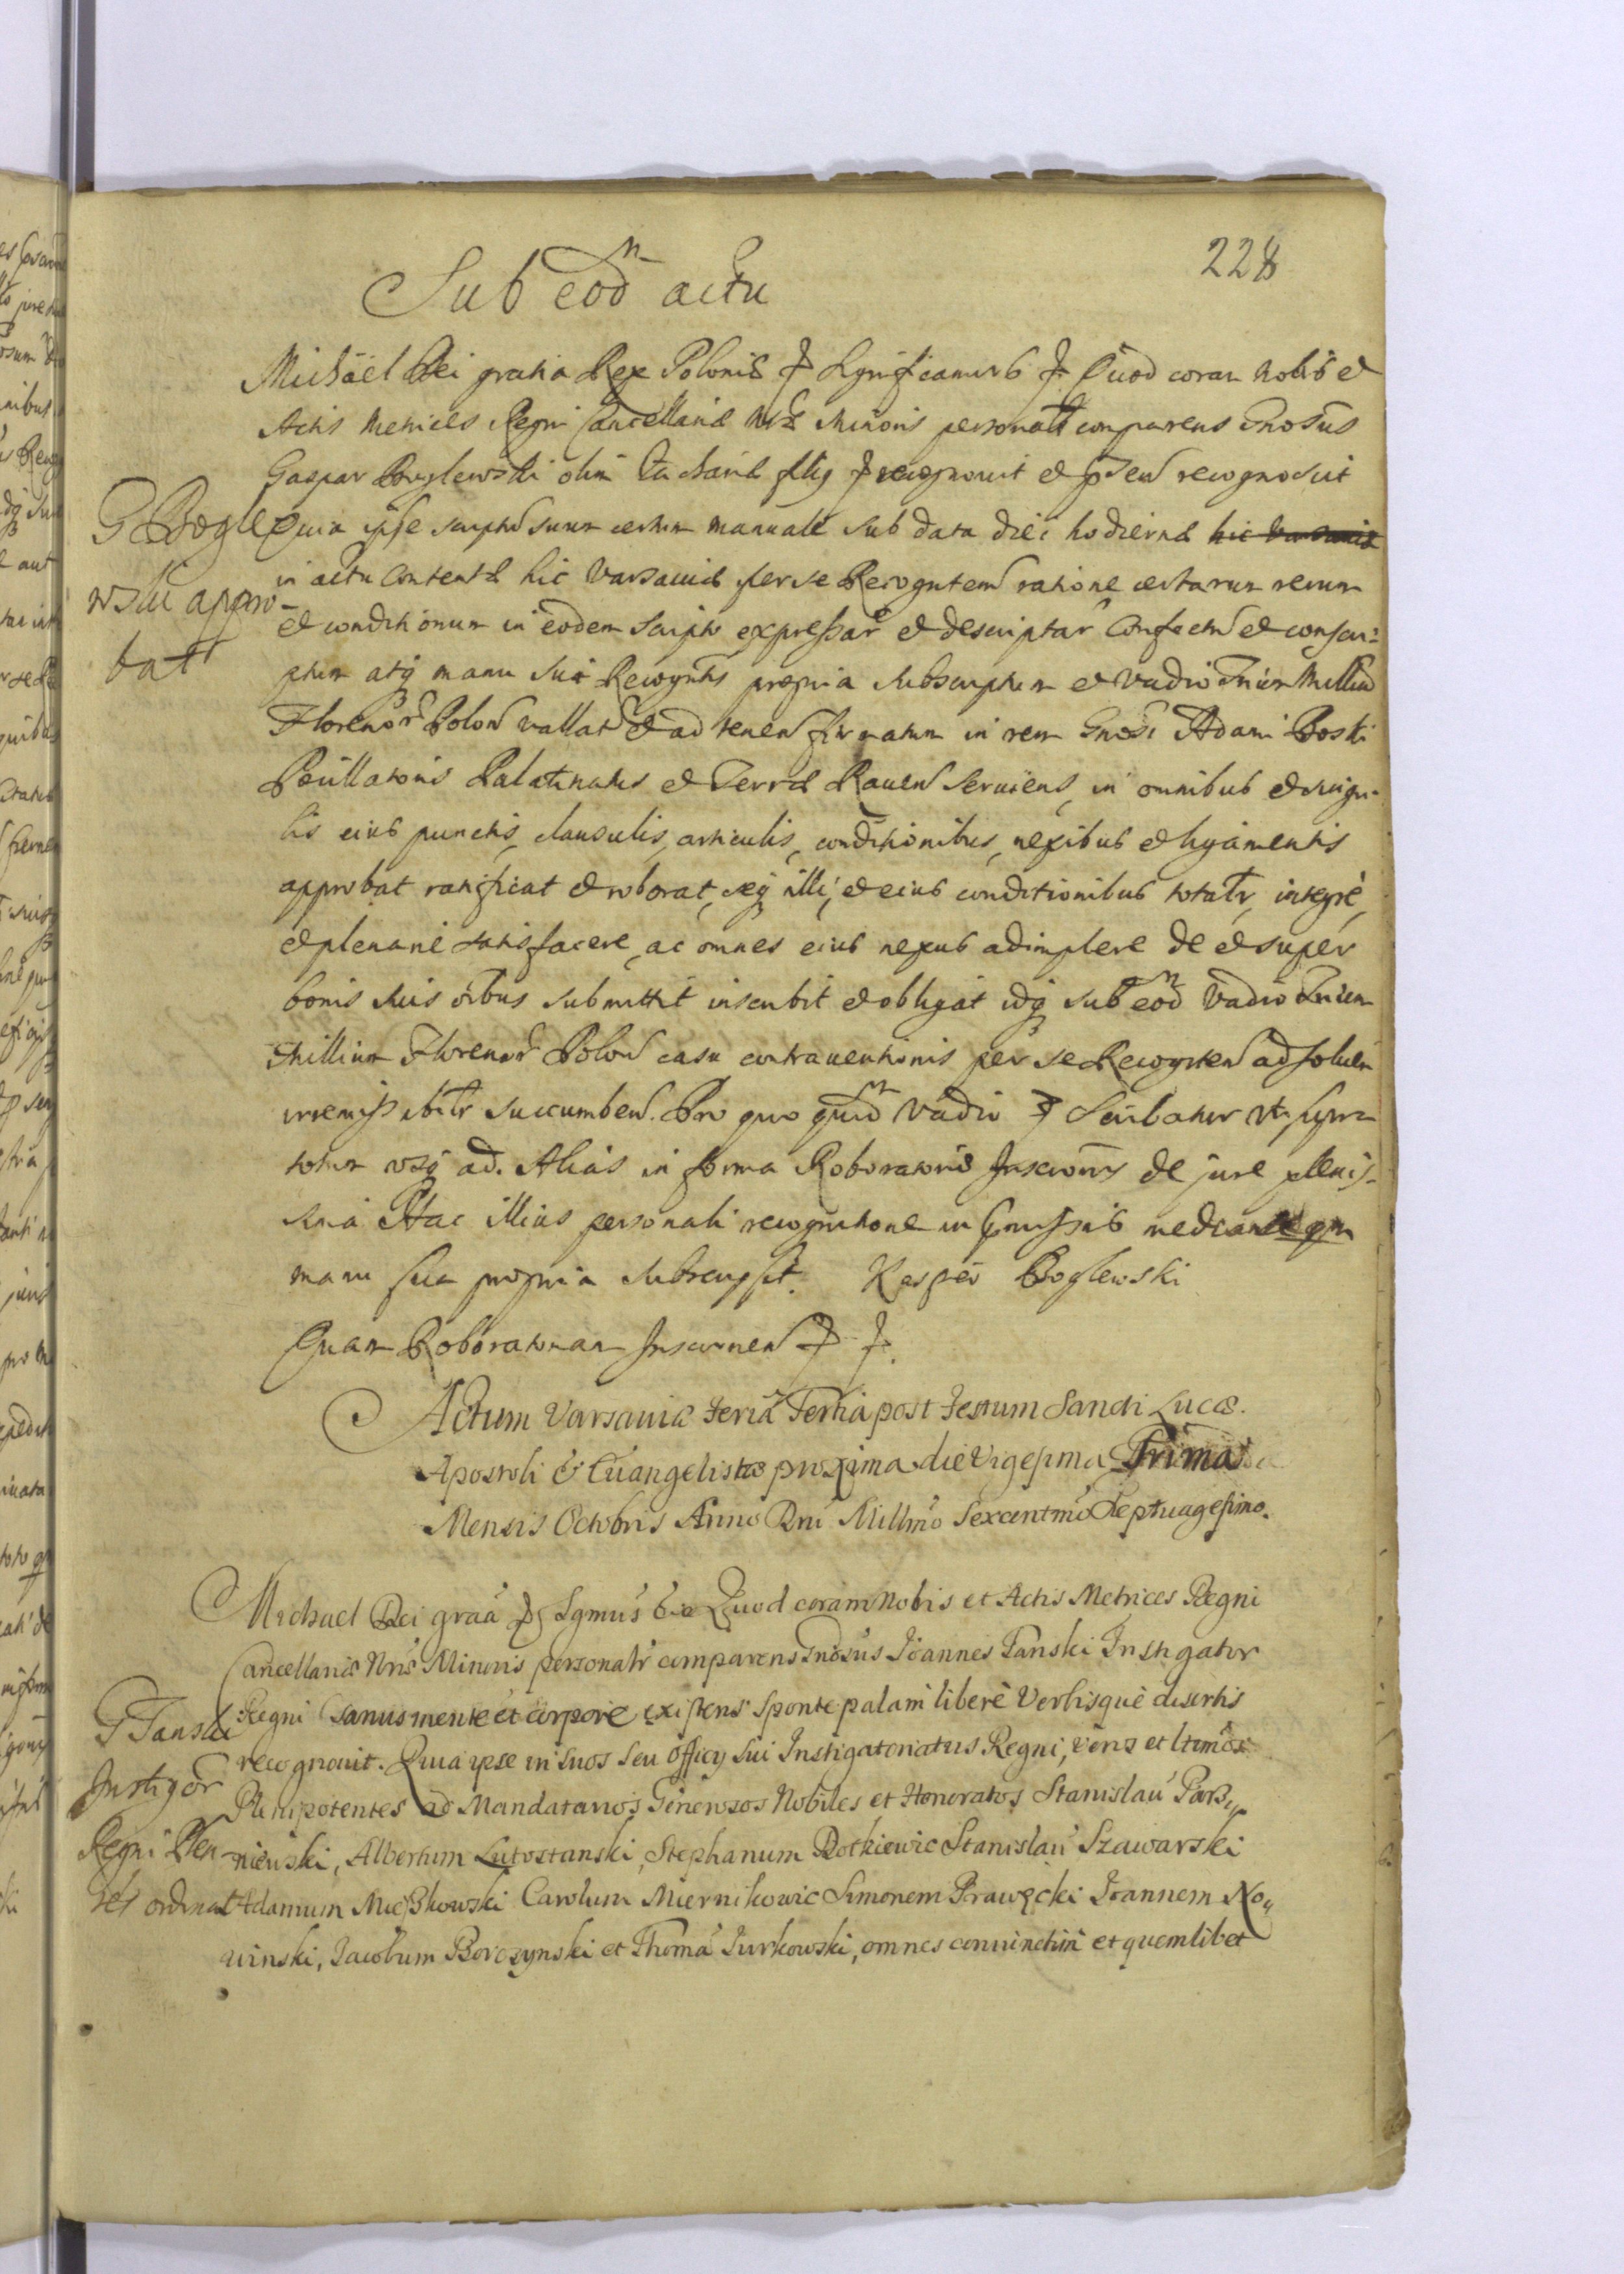 228
Sub eodm actu
Michäel Dei gratia Rex Poloniæ Significamus Quod coram Nobis et
Actis Metrices Regni Cancellariæ Nræ Minoris personalr comparens Gnosus
Gaspar Boglewski olim filij recognouit et recognoscit
G Bogle
Quia ipse scriptu suum certum manuale sub data diei hodiernæ hic Varsauiæ
wski appro-
in actu contentæ hic Varsauiæ per se Recogntem ratione certarum rerum
et conditionum in eodem scripto expressar et descriptar confectu et conscri-
bat
ptum atq manu sua Recogntis propria subscriptum et vadio Trium Milliu
Florenor Polon vallat et ad tenen firmatum in rem Gnosi Adami Boski
Pocillatoris Palatinatus et Terræ Rauen seruiens, in omnibus et singu-
lis eius punctis, clausulis, articulis, conditionibus, nexibus et ligamentis
approbat ratificat et roborat, seq illi, et eius conditionibus totalr, integrè,
et plenariè satisfacere, ac omnes eius nexus adimplere de et super
bonis suis oibus submittit inscribit et obligat idq sub eodm vadio Trium
Millium Florenor Polon casu contrauentionis per se Recognten ad soluen
irremissibilr succumben. Pro quo quidm vadio Scribatur vt supra
totum vsq ad. Alias in forma Roboratoriæ Inscriönis de jure plenis-
sima Hac illius personali recognitione in præmissis mediante qm
manu sua propria subscripsit. Kasper Boglewski
Quam Roboratoriam Inscrionem
Actum Varsauiæ Feriâ Tertia post Festum Sancti Lucæ.
Apostoli & Euangelistæ proxima die Vigesima Prima
Mensis Octobris Anno Dni Millmo Sexcentmo Septuagesimo.
Michael Dei graa Sgmus Quod coram Nobis et Actis Metrices Regni
Cancellariæ Nræ Minoris personalr comparens Gnosus Joannes Tanski Instigator
G Tanski
Regni Sanus mente et corpore existens sponte palam liberè Verbisque disertis
recognouit. Quia ipse in suos seu officy sui Instigatoriatus Regni, veros et ltimos
Instigor
Plenipotentes ac Mandatarios Generosos Nobiles et Honoratos Stanislau Parz,,
Regni Plen-
niewski, Albertum Lutostanski, Stephanum Rotkiewic Stanislau Szawarski
tes ordinat
Adamum Mieszkowski Carolum Miernikowic Simonem Prawęcki Joannem No,,
winski, Jacobum Borczynski et Thoma Jurkowski, omnes conuinctim et quemlibet